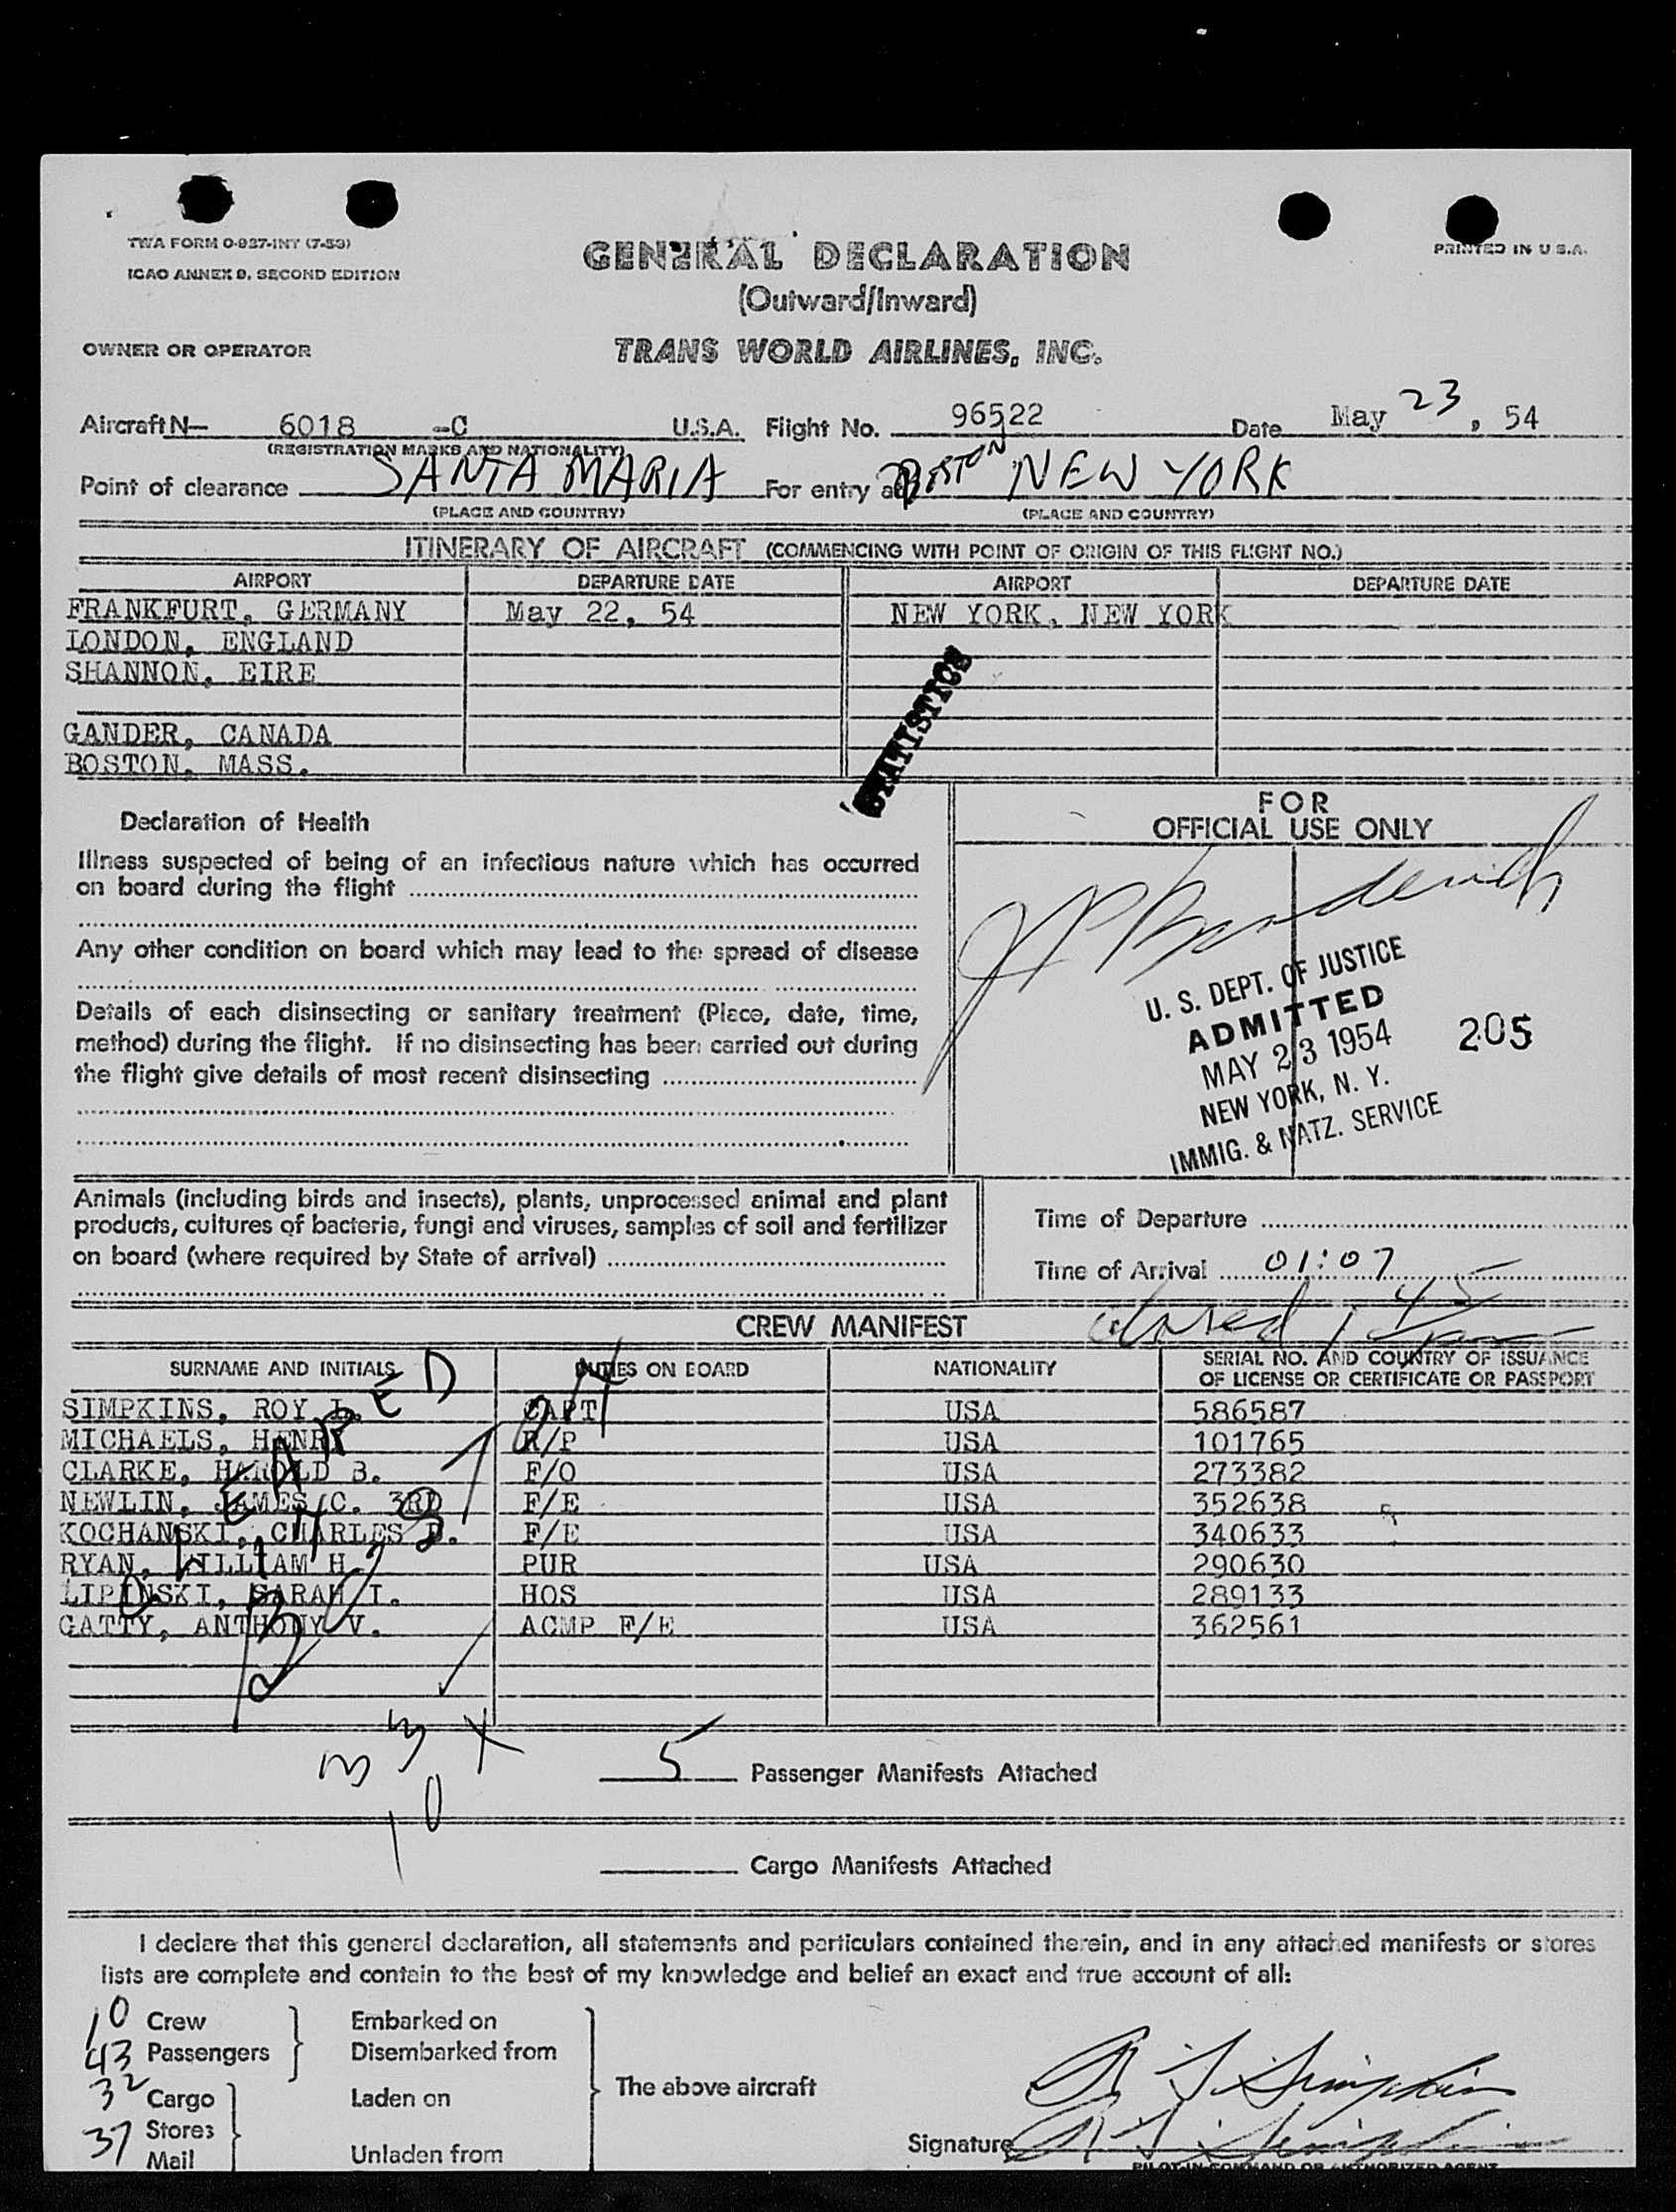 TWA FORM O-937-INT (7-53)
ICAO ANNEX 9, SECOND EDITION
PRINTED IN U.S.A.
GENERAL DECLARATION
(Outward/Inward)
OWNER OR OPERATOR
TRANS WORLD AIRLINES, INC.
Aircraft N— 6018 -C U.S.A. Flight No. 96522 Date May 23, 54
(REGISTRATION MARKS AND NATIONALITY)
Point of clearance SANTA MARIA For entry at BOSTON NEW YORK
(PLACE AND COUNTRY) (PLACE AND COUNTRY)
ITINERARY OF AIRCRAFT (COMMENCING WITH POINT OF ORIGIN OF THIS FLIGHT NO.)
AIRPORT DEPARTURE DATE AIRPORT DEPARTURE DATE
FRANKFURT, GERMANY May 22, 54 NEW YORK, NEW YORK
LONDON, ENGLAND
SHANNON, EIRE
GANDER, CANADA
BOSTON, MASS.
STATISTICS
Declaration of Health
Illness suspected of being of an infectious nature which has occurred
on board during the flight
Any other condition on board which may lead to the spread of disease
Details of each disinsecting or sanitary treatment (Place, date, time,
method) during the flight. If no disinsecting has been carried out during
the flight give details of most recent disinsecting
FOR
OFFICIAL USE ONLY
U. S. DEPT. OF JUSTICE
ADMITTED
MAY 23 1954
NEW YORK, N. Y.
IMMIG. & NATZ. SERVICE
205
Animals (including birds and insects), plants, unprocessed animal and plant
products, cultures of bacteria, fungi and viruses, samples of soil and fertilizer
on board (where required by State of arrival)
Time of Departure
Time of Arrival 01:07
145
CREW MANIFEST
SURNAME AND INITIALS DUTIES ON BOARD NATIONALITY SERIAL NO. AND COUNTRY OF ISSUANCE
OF LICENSE OR CERTIFICATE OR PASSPORT
SIMPKINS, ROY L. CAPT USA 586587
MICHAELS, HENRY R/P USA 101765
CLARKE, HAROLD B. F/O USA 273382
NEWLIN, JAMES C. 3RD F/E USA 352638
KOCHANSKI, CHARLES D. F/E USA 340633
RYAN, WILLIAM H. PUR USA 290630
LIPINSKI, SARAH I. HOS USA 289133
GATTY, ANTHONY V. ACMP F/E USA 362561
CLEARED
10
5 Passenger Manifests Attached
Cargo Manifests Attached
I declare that this general declaration, all statements and particulars contained therein, and in any attached manifests or stores
lists are complete and contain to the best of my knowledge and belief an exact and true account of all:
10 Crew Embarked on
43 Passengers Disembarked from
32 Cargo Laden on The above aircraft
37 Stores
Mail Unladen from
Signature R L Simpkins
R L Simpkins
PILOT-IN-COMMAND OR AUTHORIZED AGENT